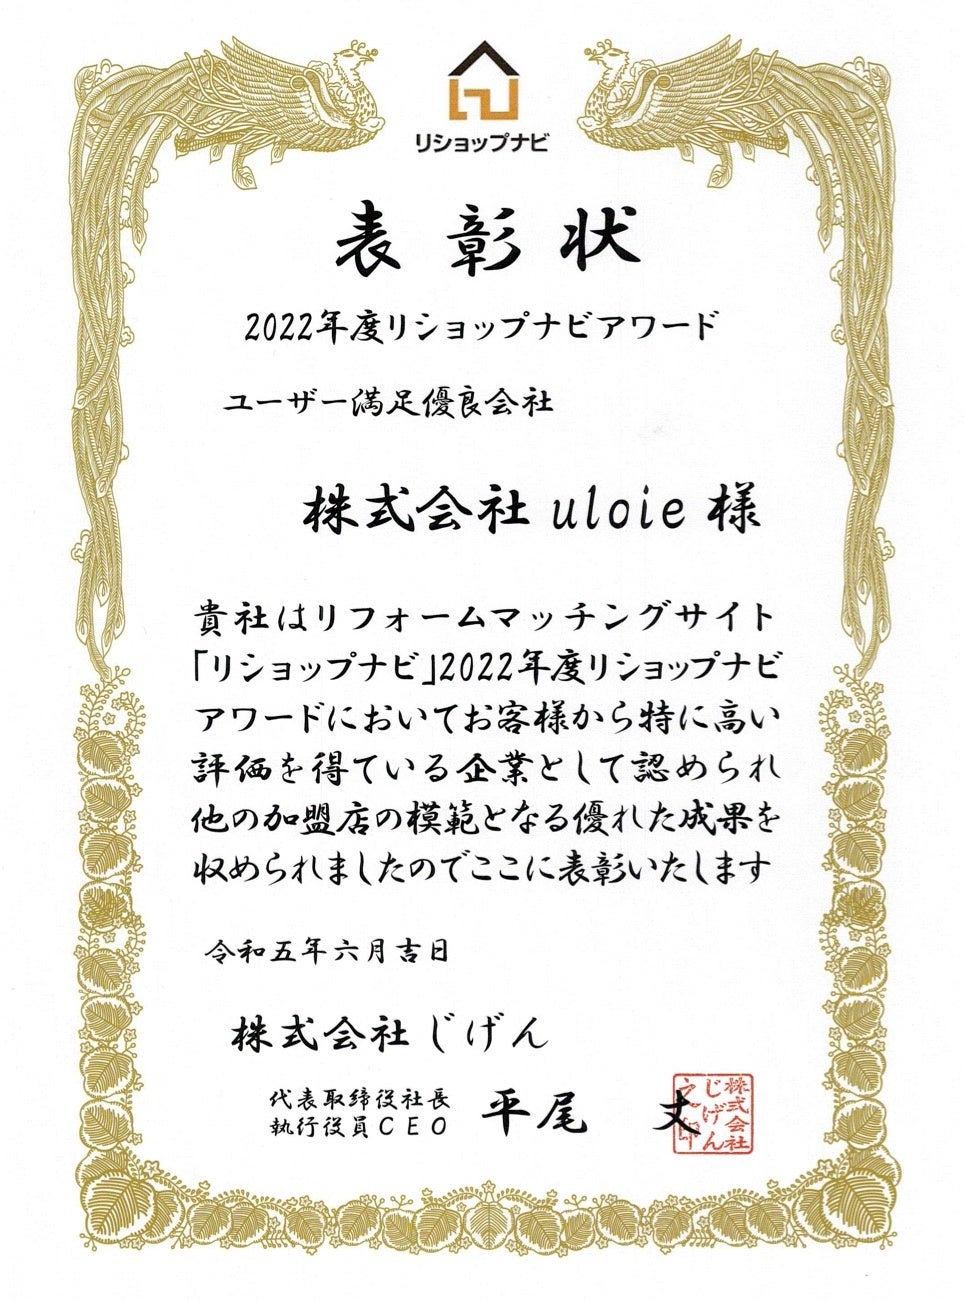 リショップナビ
表彰状
2022年度リショップナビアワード
ユーザー満足優良会社
株式会社 uloie 様
貴社はリフォームマッチングサイト
「リショップナビ」2022年度リショップナビ
アワードにおいてお客様から特に高い
評価を得ている企業として認められ
他の加盟店の模範となる優れた成果を
収められましたのでここに表彰いたします
令和五年六月吉日
株式会社じげん
代表取締役社長
執行役員CEO
平尾 丈
株式会社
じげん
之印